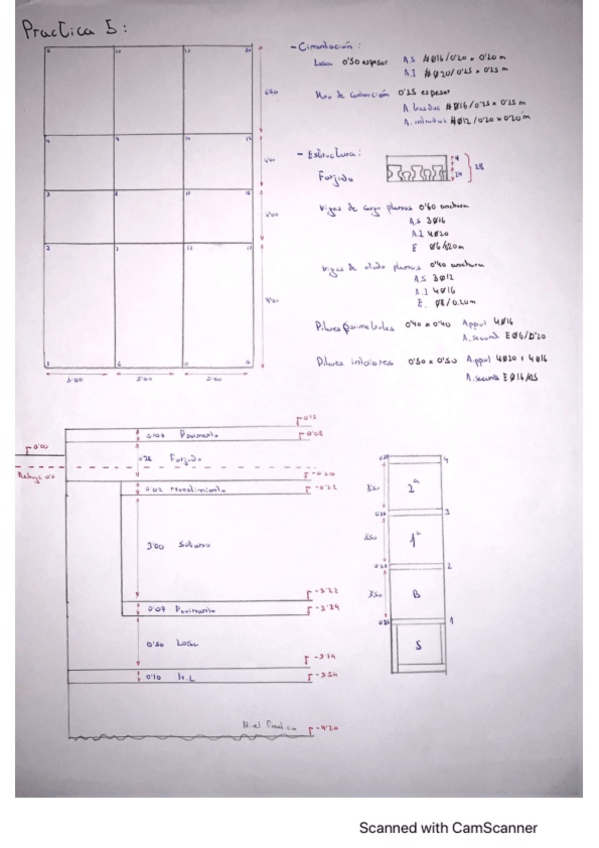 Practica 5:
- Cimentación:
Losa 0'50 espesor A.S #Ø16/0'20 x 0'20 m
A.I #Ø20/0'25 x 0'25 m
Muro de Contención 0'25 espesor
A. trasdos #Ø16/0'25 x 0'25 m
A. intrados #Ø12/0'20 x 0'20 m
- Estructura:
Forjado
4
24
28
Vigas de carga planas 0'60 anchura
A.S 3Ø16
A.I 4Ø20
E Ø6/20m
Vigas de atado planas 0'40 anchura
A.S 3Ø12
A.I 4Ø16
E. Ø8/0.20m
Pilares 0'40 x 0'40 A.ppal 4Ø16
A.secund EØ6/0'20
Pilares interiores 0'50 x 0'50 A.ppal 4Ø20 + 4Ø16
A.secund E Ø16/
5'00 5'00 5'00
0'15
0'07 Pavimento
0'08
0'00
0'28 Forjado
-0'20
0'02 revestimiento
-0'22
3'00 Sotano
-3'22
0'07 Pavimento
-3'29
0'50 Losa
0'10 H.L
Nivel Freatico -4'20
4
3'50 2ª
3
1ª
2
3'50 B
1
S
Scanned with CamScanner